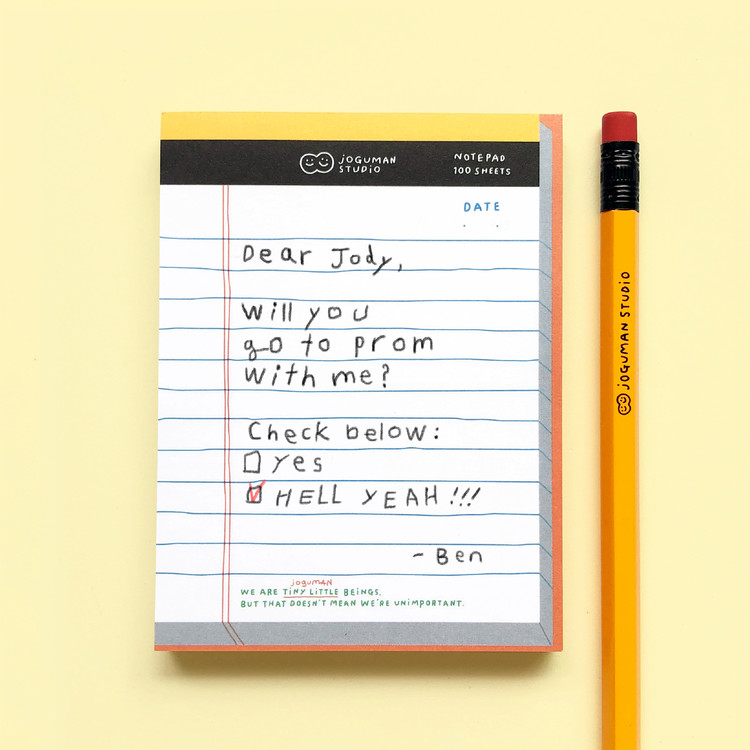 joguman
studio
NOTEPAD
100 SHEETS
DATE
Dear Jody,
Will you
go to prom
with me?
Check below:
yes
HELL YEAH!!!
- Ben
joguman
WE ARE TINY LITTLE BEINGS,
BUT THAT DOESN'T MEAN WE'RE UNIMPORTANT.
JOGUMAN STUDIO